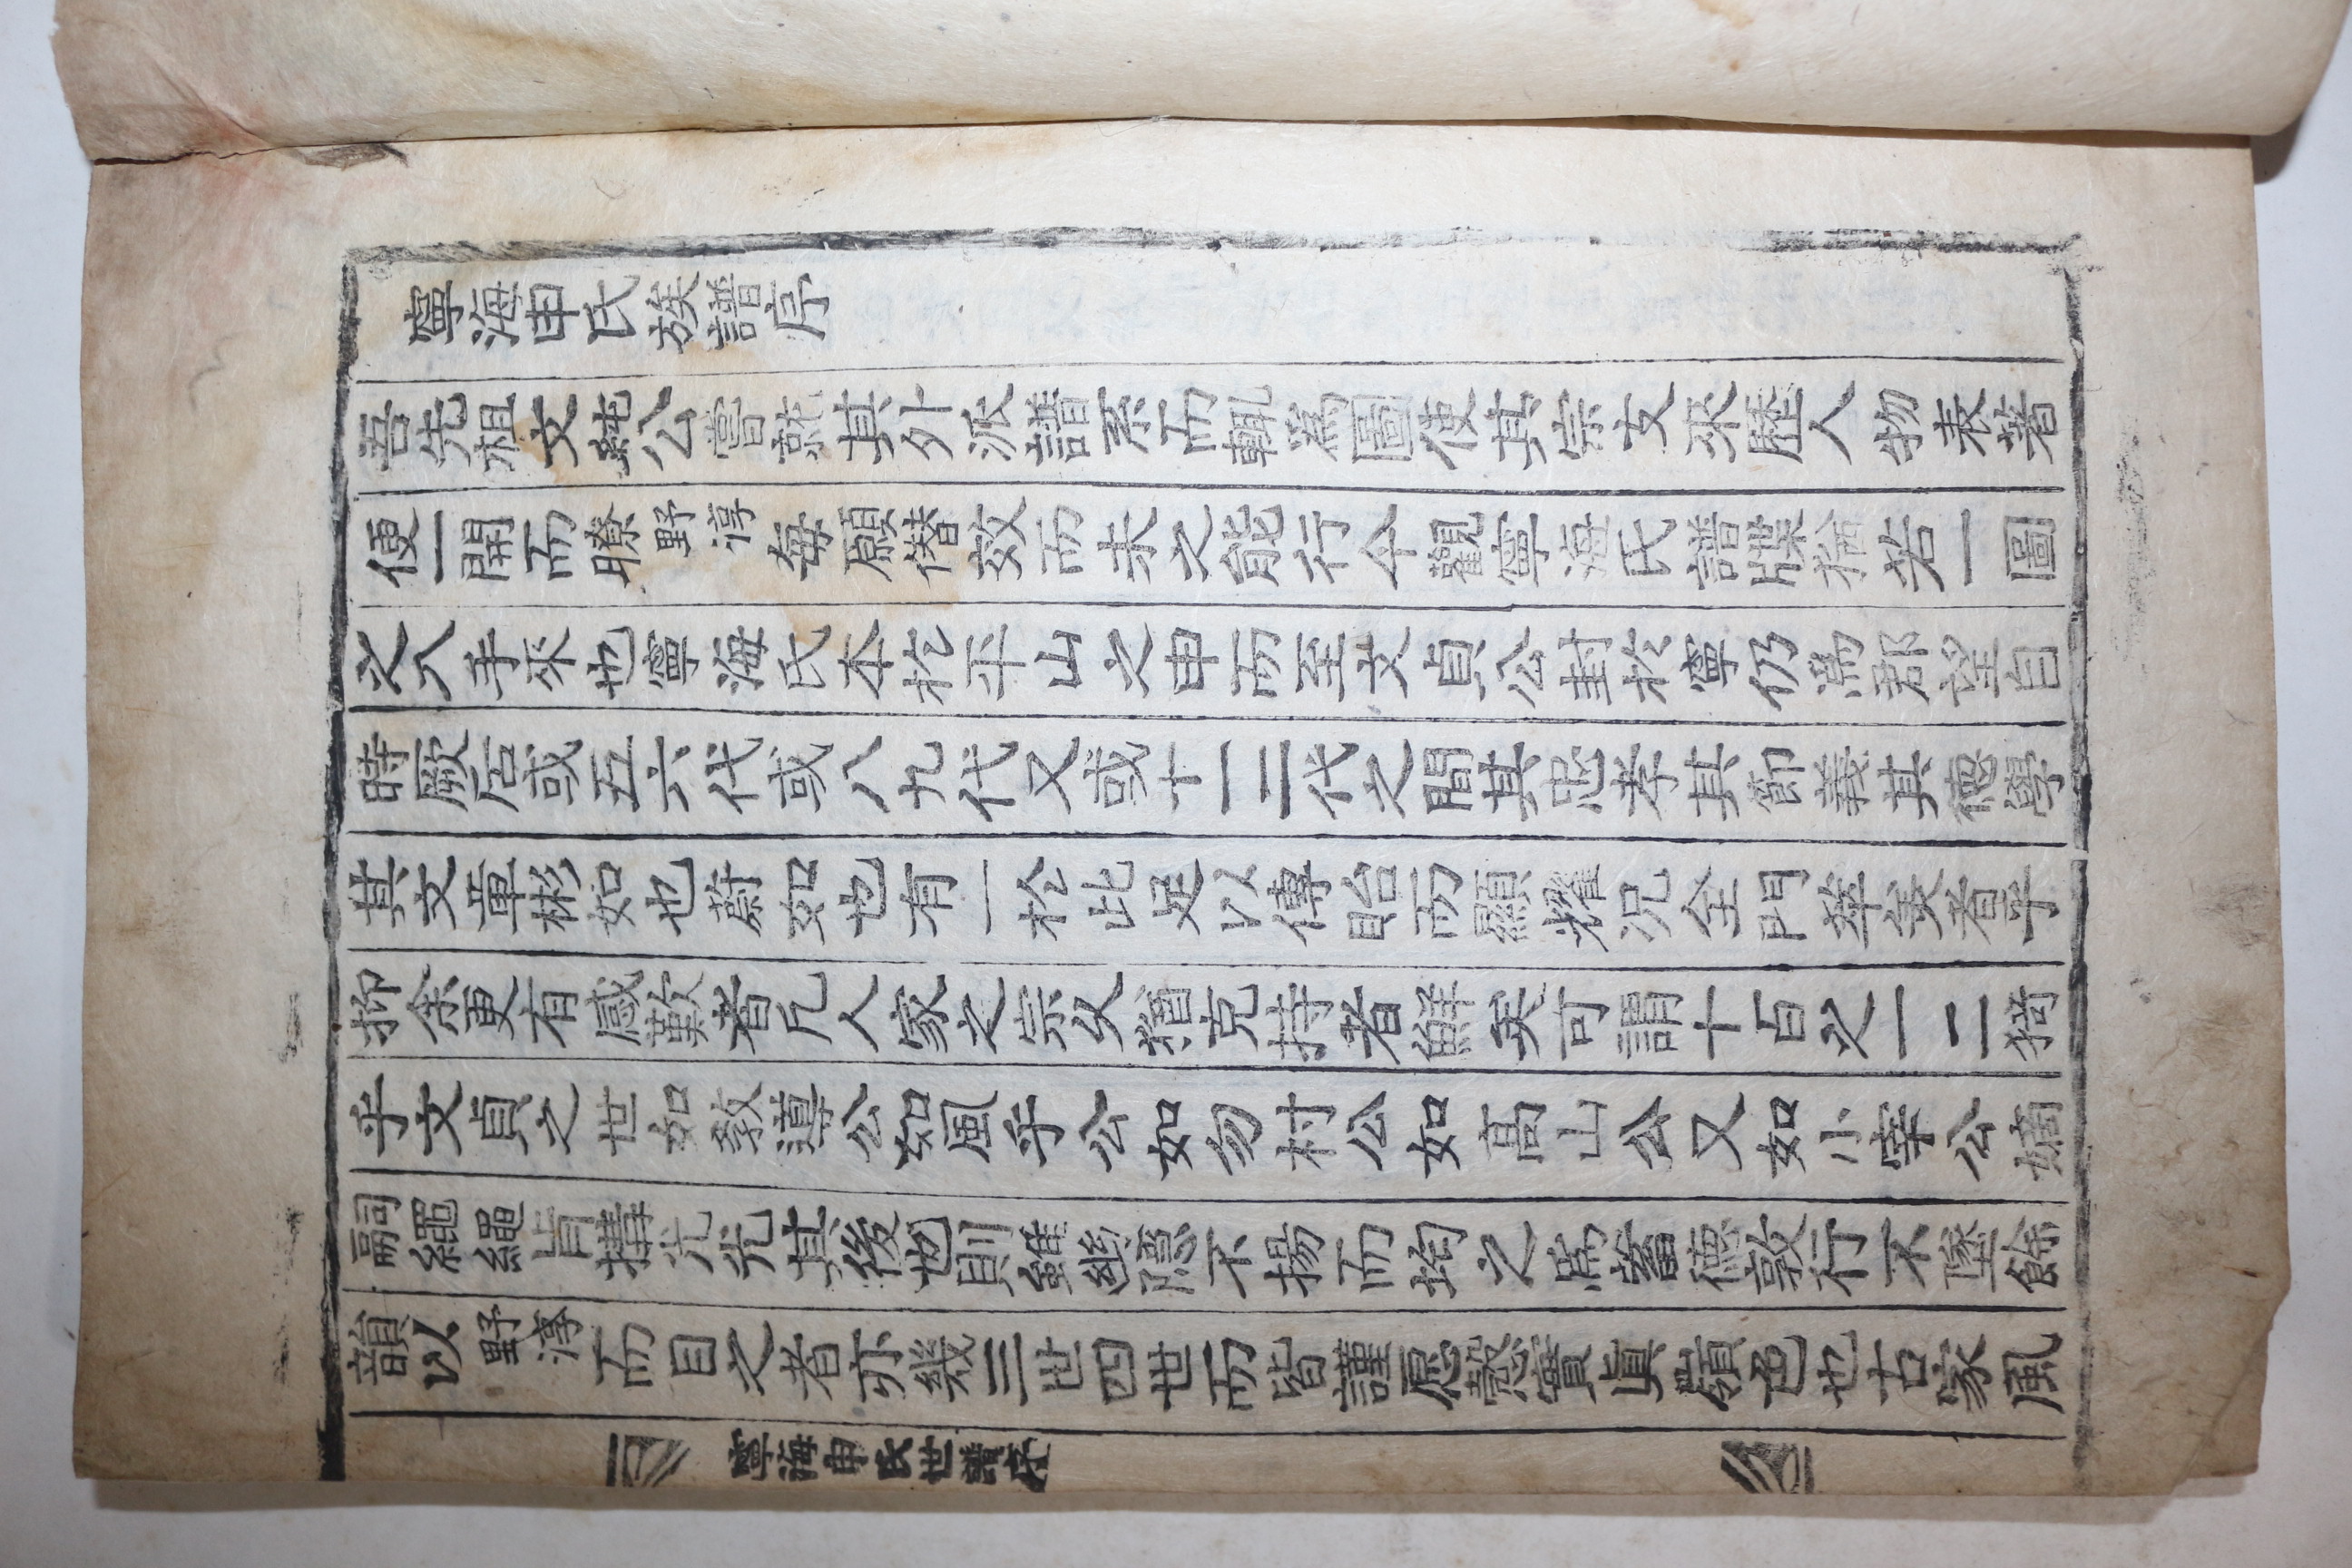 寧海申氏族譜序
吾先祖文純公嘗就其外派譜系而輒爲圖使其宗支來歷人物表著
便一開而瞭野淳每願僭效而未之能行今觀寧海氏譜牒猶若一圖
之入手來也寧海氏本於平山之申而至文貞公封於寧仍爲郡望自
時厥后或五六代或八九代又或十一二代之間其忠孝其節義其德學
其文章彬如也蔚如也有一於此足以傳貽而顯耀况全門萃美者乎
抑余更有感歎者凡人家之宗久猶克持者鮮矣可謂十百之一二猗
乎文貞之世如敎導公如風乎公如勿村公如高山公又如小宰公嫡
嗣繩繩肯搆光光其後也則雖幽隱不揚而均之爲蓄德敦行不墜餘
韻以野淳而目之者亦幾三世四世而皆謹愿慤實眞嶺色也古家風
寧海申氏世譜序